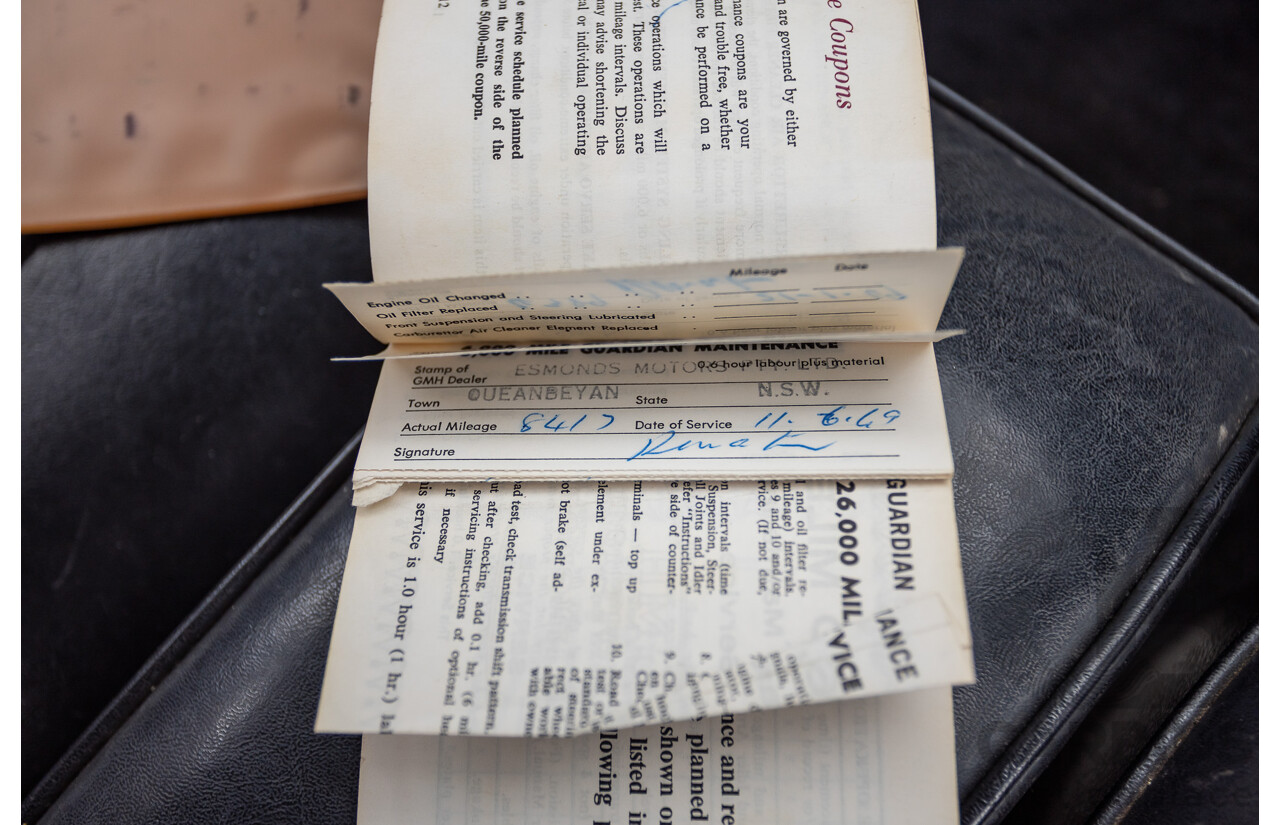 e Coupons
n are governed by either
nance coupons are your
and trouble free, whether
nce be performed on a
ce operations which will
st. These operations are
mileage intervals. Discuss
nay advise shortening the
al or individual operating
e service schedule planned
on the reverse side of the
e 50,000-mile coupon.
12
Mileage Date
Engine Oil Changed
Oil Filter Replaced
Front Suspension and Steering Lubricated
Carburettor Air Cleaner Element Replaced
6,000 MILE GUARDIAN MAINTENANCE
0.6 hour labour plus material
Stamp of
GMH Dealer ESMONDS MOTORS PTY. LTD.
Town QUEANBEYAN State N.S.W.
Actual Mileage 8417 Date of Service 11. 6.69
Signature
GUARDIAN ANCE
26,000 MIL VICE
l and oil filter re-
mileage) intervals.
es 9 and 10 and/or
rvice. (If not due,
on intervals (time
Suspension, Steer-
ll Joints and Idler
efer "Instructions"
e side of counter-
rminals — top up
element under ex-
ot brake (self ad-
oad test, check transmission shift pattern.
ut after checking, add 0.1 hr. (6 mi
servicing instructions of optional
if necessary
his service is 1.0 hour (1 hr.) la
9. Ch
10. Road
test
standard
rect whe
able wor
with owne
nce and re
planned
shown on
listed in
llowing